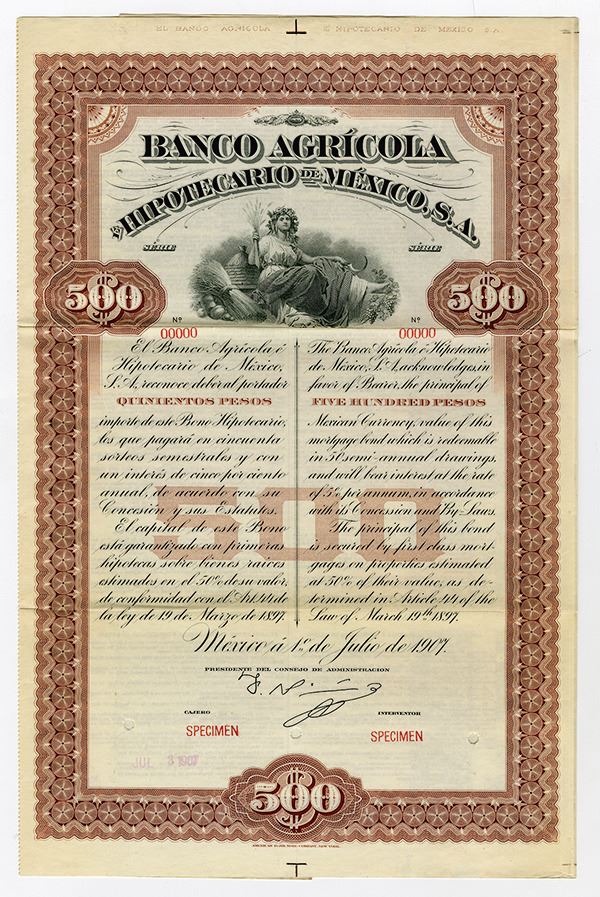 EL BANCO AGRICOLA É HIPOTECARIO DE MEXICO S.A.
BANCO AGRÍCOLA
É HIPOTECARIO DE MÉXICO, S.A.
SÉRIE
SÉRIE
500
500
Nº
00000
Nº
00000
El Banco Agrícola é
Hipotecario de México,
S.A. reconoce deber al portador
QUINIENTOS PESOS
importe de este Bono Hipotecario,
los que pagará en cincuenta
sorteos semestrales y con
un interés de cinco por ciento
anual, de acuerdo con su
Concesión y sus Estatutos.
El capital de este Bono
está garantizado con primeras
hipotecas sobre bienes raices
estimados en el 50% de su valor,
de conformidad con el Art. 44 de
la ley de 19 de Marzo de 1897.
The Banco Agrícola é Hipotecario
de México, S.A. acknowledges, in
favor of Bearer, the principal of
FIVE HUNDRED PESOS
Mexican Currency, value of this
mortgage bond which is redeemable
in 50 semi-annual drawings,
and will bear interest at the rate
of 5% per annum, in accordance
with its Concession and By-Laws.
The principal of this bond
is secured by first class mort-
gages on properties estimated
at 50% of their value, as de-
termined in Article 44 of the
Law of March 19th 1897.
500
México á 1º de Julio de 1907.
PRESIDENTE DEL CONSEJO DE ADMINISTRACION
CAJERO
INTERVENTOR
SPECIMEN
SPECIMEN
JUL 3 1907
500
AMERICAN BANK NOTE COMPANY, NEW YORK.